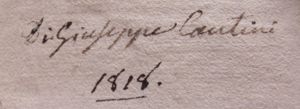 Di Giuseppe Cantini
1818.